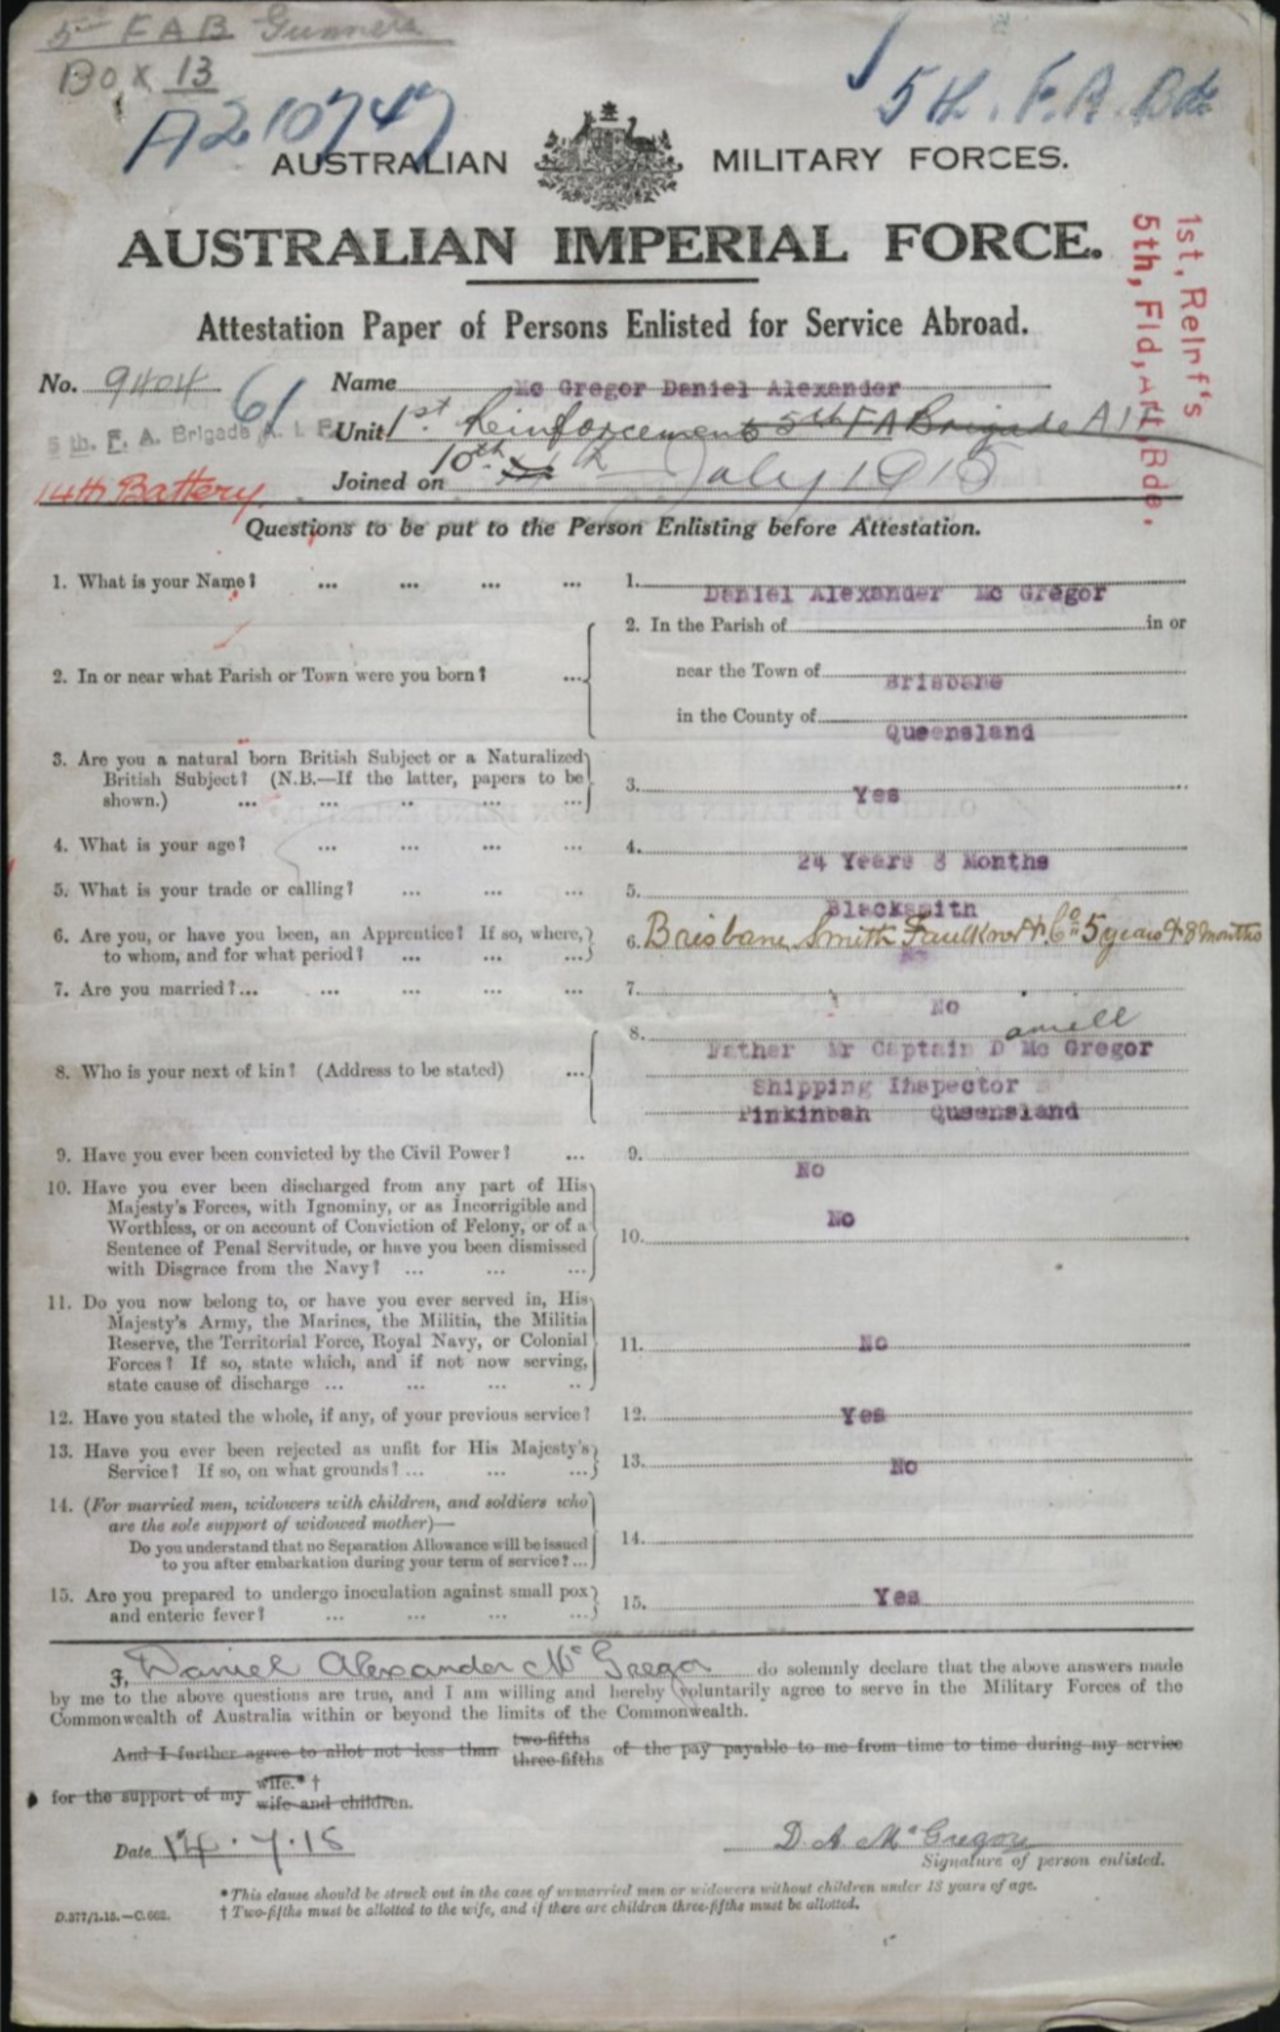 5th F A B Gunners
Box 13
A210747
5th. F. A. Bde
AUSTRALIAN MILITARY FORCES.
AUSTRALIAN IMPERIAL FORCE.
1st, Reinf's
5th, Fld, Art, Bde.
Attestation Paper of Persons Enlisted for Service Abroad.
No. 9404 Name Mc Gregor Daniel Alexander
61
5 th. F. A. Brigade A. I. F. Unit 1st. Reinforcements 5th FA Brigade AIF
14th Battery. Joined on 10th July 1915
Questions to be put to the Person Enlisting before Attestation.
1. What is your Name? ... ... ... ... 1. Daniel Alexander Mc Gregor
2. In or near what Parish or Town were you born? ... 2. In the Parish of in or
near the Town of Brisbane
in the County of Queensland
3. Are you a natural born British Subject or a Naturalized
British Subject? (N.B.—If the latter, papers to be
shown.) ... ... .. ... ... 3. Yes
4. What is your age? ... ... ... ... 4. 24 Years 8 Months
5. What is your trade or calling? ... ... ... 5. Blacksmith
6. Are you, or have you been, an Apprentice? If so, where,
to whom, and for what period? ... ... ... 6. Brisbane, Smith Faulknor & Co 5 years & 8 months
No
7. Are you married?... ... ... ... ... 7. No
8. Who is your next of kin? (Address to be stated) ... 8. Father Mr Captain D aniell Mc Gregor
Shipping Inspector
Pinkinbah Queensland
9. Have you ever been convicted by the Civil Power? ... 9. No
10. Have you ever been discharged from any part of His
Majesty's Forces, with Ignominy, or as Incorrigible and
Worthless, or on account of Conviction of Felony, or of a
Sentence of Penal Servitude, or have you been dismissed
with Disgrace from the Navy? ... ... ... 10. No
11. Do you now belong to, or have you ever served in, His
Majesty's Army, the Marines, the Militia, the Militia
Reserve, the Territorial Force, Royal Navy, or Colonial
Forces? If so, state which, and if not now serving,
state cause of discharge ... ... ... .. 11. No
12. Have you stated the whole, if any, of your previous service? 12. Yes
13. Have you ever been rejected as unfit for His Majesty's
Service? If so, on what grounds? ... ... ... 13. No
14. (For married men, widowers with children, and soldiers who
are the sole support of widowed mother)—
Do you understand that no Separation Allowance will be issued
to you after embarkation during your term of service? ... 14.
15. Are you prepared to undergo inoculation against small pox
and enteric fever? ... ... ... ... 15. Yes
I, Daniel Alexander McGregor do solemnly declare that the above answers made
by me to the above questions are true, and I am willing and hereby voluntarily agree to serve in the Military Forces of the
Commonwealth of Australia within or beyond the limits of the Commonwealth.
And I further agree to allot not less than two-fifths three-fifths of the pay payable to me from time to time during my service
for the support of my wife.* † wife and children.
Date 14.7.15 D. A. McGregor
Signature of person enlisted.
* This clause should be struck out in the case of unmarried men or widowers without children under 18 years of age.
D.377/1.15.—C.662. † Two-fifths must be allotted to the wife, and if there are children three-fifths must be allotted.